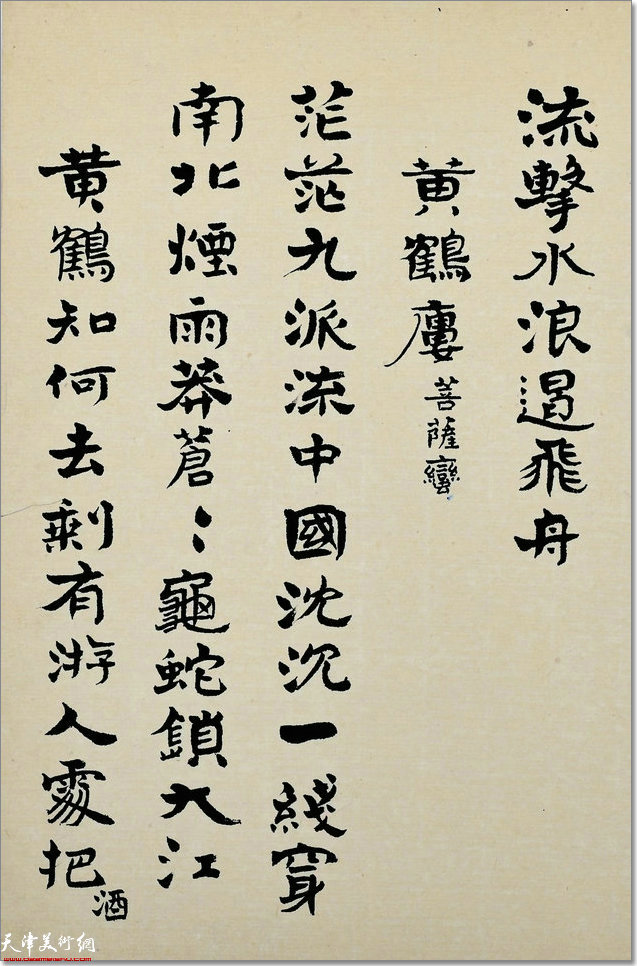 流擊水浪遏飛舟
黃鶴廔菩薩蠻
茫茫九派流中國沈沉一綫穿
南北煙雨莽蒼〻龜蛇鎖大江
黃鶴知何去剩有游人處把酒
天津美術網